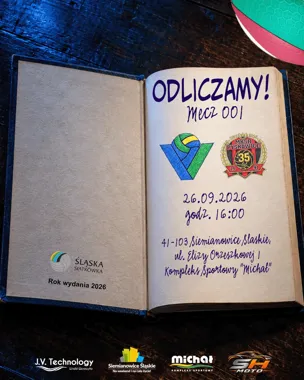 ODLICZAMY!
Mecz 001
35
26.09.2026
godz. 16:00
41-103 Siemianowice Śląskie,
ul. Elizy Orzeszkowej 1
Kompleks Sportowy "Michał"
ŚLĄSKA
SIATKÓWKA
Rok wydania 2026
J.V. Technology
Siemianowice Śląskie
michał
KOMPLEKS SPORTOWY
SH
MOTO